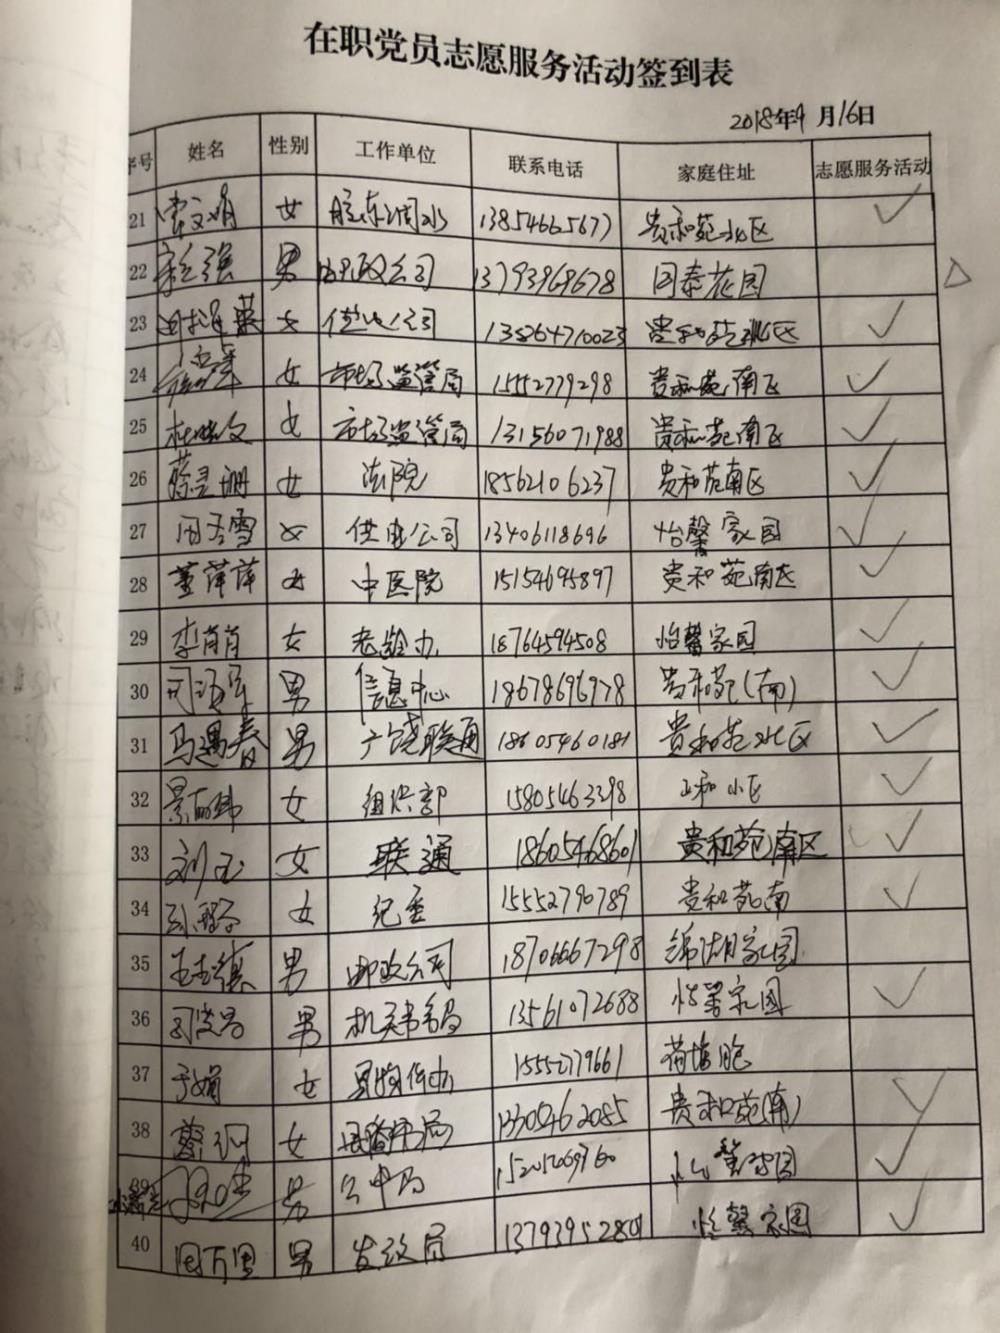 在职党员志愿服务活动签到表
2018年9月16日
序号 姓名 性别 工作单位 联系电话 家庭住址 志愿服务活动
21 常文娟 女 胶东调水 13854665677 贵和苑北区 ✓
22 强 男 邮政公司 13793969678 国泰花园 △
23 女 供电公司 13626471002 贵和苑北区 ✓
24 女 市场监管局 15552779298 贵和苑南区 ✓
25 杜晓文 女 市场监管局 13156071988 贵和苑南区 ✓
26 蔡灵珊 女 法院 18562106237 贵和苑南区 ✓
27 雪 女 供电公司 13406118696 怡馨家园 ✓
28 董萍萍 女 中医院 15154695897 贵和苑南区 ✓
29 李肖肖 女 老龄办 18764594508 怡馨家园 ✓
30 男 信息中心 18678696978 贵和苑(南) ✓
31 马遇春 男 广饶联通 18605460181 贵和苑北区 ✓
32 景 女 组织部 15805463398 正和小区 ✓
33 刘玉 女 联通 18605468601 贵和苑南区 ✓
34 女 纪委 15552790789 贵和苑南 ✓
35 王 男 邮政公司 18706667298 锦湖家园
36 男 机关事务局 13561072688 怡馨家园 ✓
37 于娟 女 15552779661
38 女 局 13305462085 贵和苑(南) ✓
39 男 局 怡馨家园 ✓
40 周万里 男 发改局 13793952801 怡馨家园 ✓